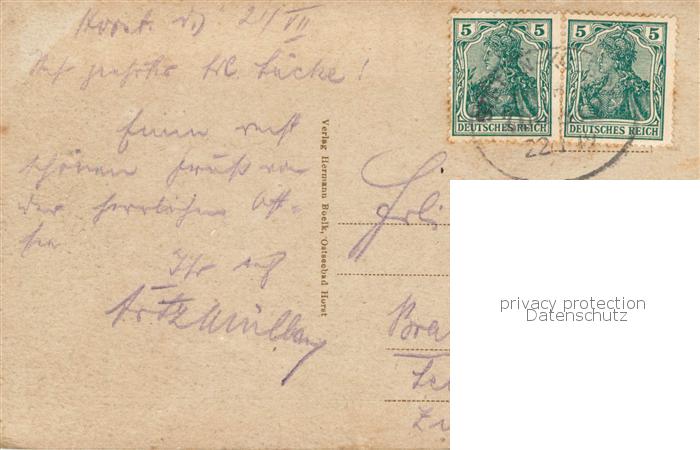 Horst. d. 21/VII
Sehr geehrtes Frl. Lücke!
Einen recht
schönen Gruß von
der herrlichen Ost-
see
Ihr
Fritz Müller
Verlag Hermann Boelk, Ostseebad Horst
5 5 5 5
DEUTSCHES REICH DEUTSCHES REICH
22
Frl.
Bra
privacy protection
Datenschutz